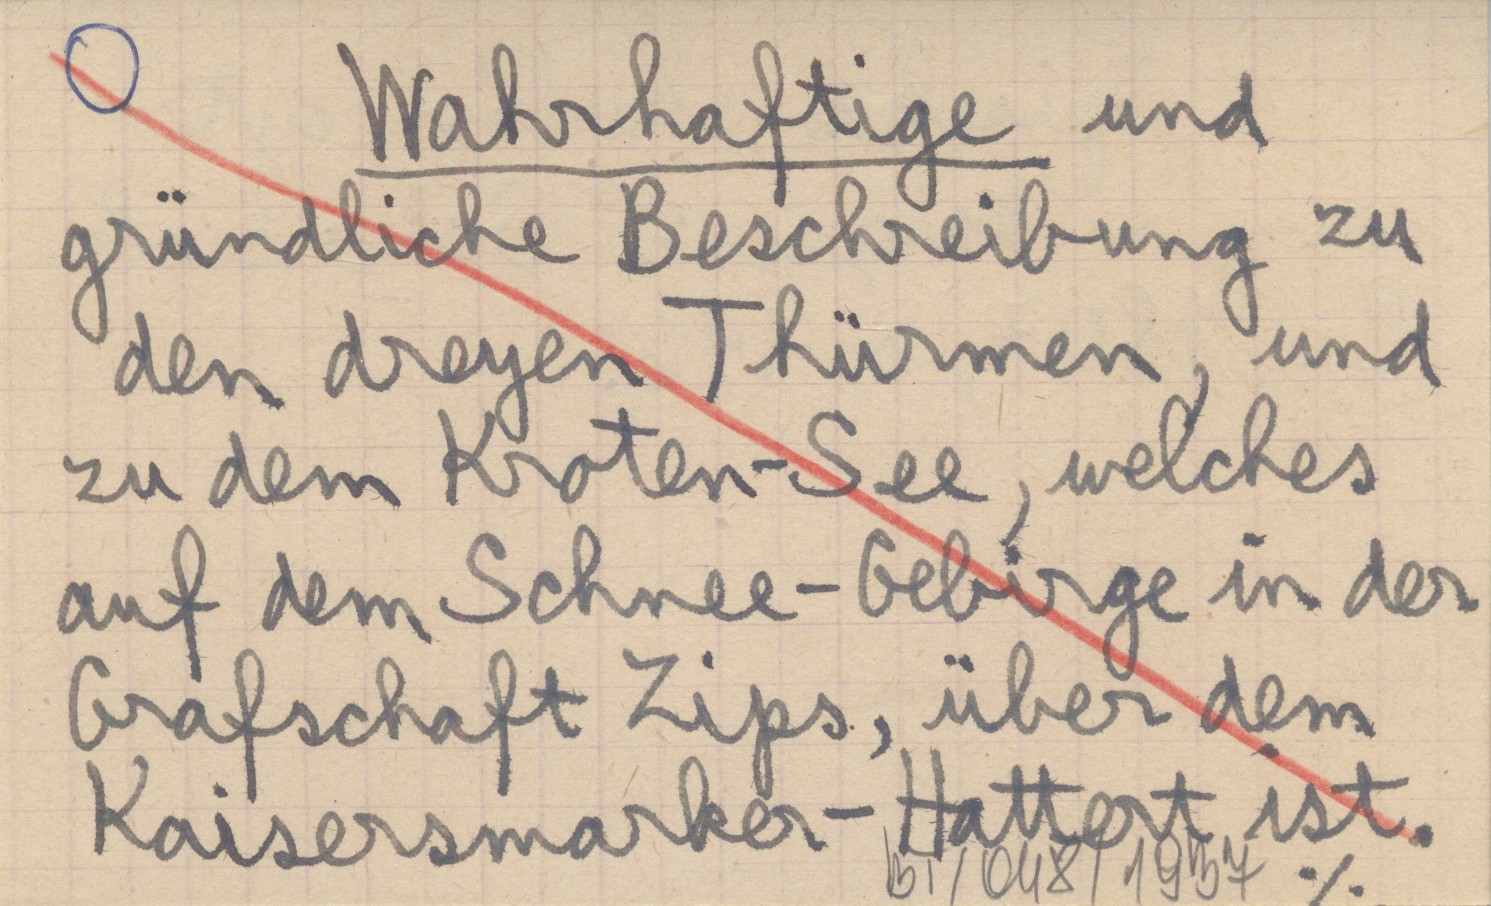 Wahrhaftige und
gründliche Beschreibung zu
den dreyen Thürmen, und
zu dem Kroten-See, welches
auf dem Schnee-Gebirge in der
Grafschaft Zips, über dem
Kaisersmarker-Hattert ist.
BI/048/1957 ./.